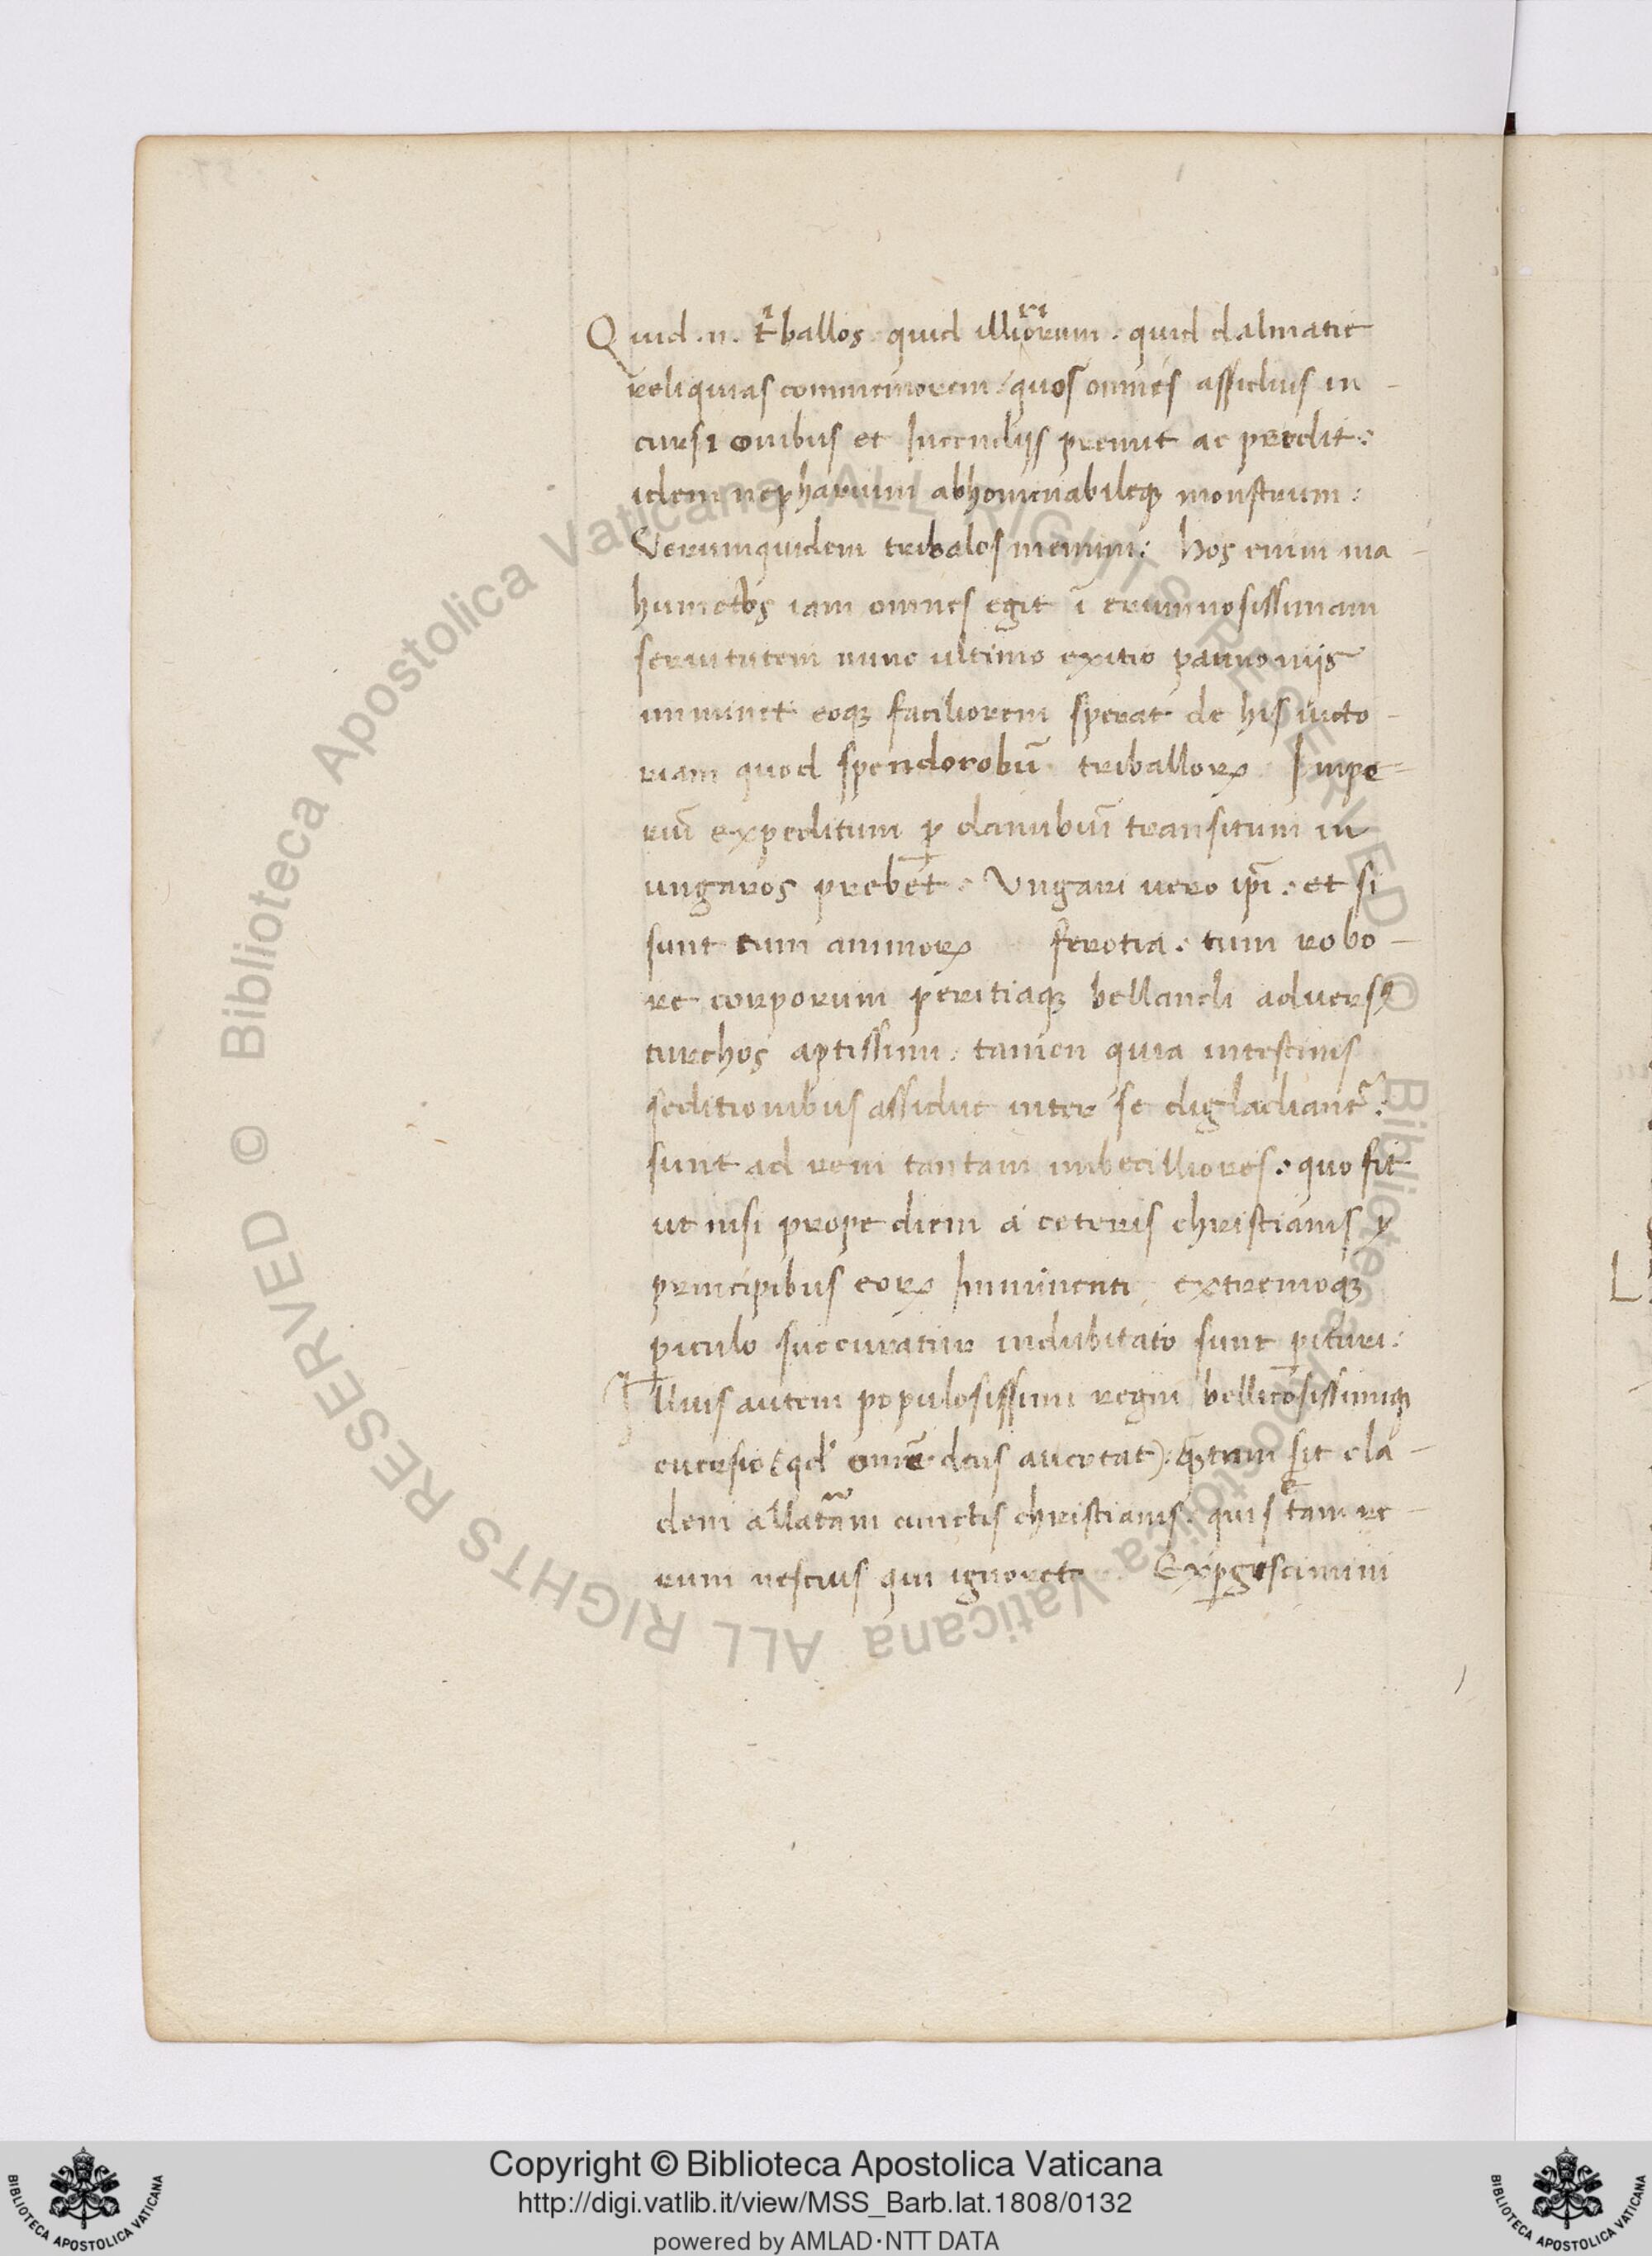 Quid .n. tͥballos quid illioͬͥrum . quid dalmatie
reliquias commemorem / quos omnes assiduis in-
cursionibus et Incendiis premit ac perdit :
idem nepharium abhominabileqꝫ monstrum :
Verumquidem tribalos memini : hos enim ma-
humetus iam omnes egit ī erumnosissimam
seruitutem nunc ultimo exitio pannoniis
imminet eoqꝫ faciliorem sperat de his uicto-
riam quod spendorobū triballoꝝ Impe=
riū expeditum ꝑ danubiū transitum in
ungaros prebet . Vngari uero ip̄i . et si
sunt tum animoꝝ ferotia . tum robo-
re corporum peritiaqꝫ bellandi aduersꝰ
turchos aptissimi . tamen quia intestinis
seditionibus assidue inter se digladiant᷑ :
sunt ad rem tantam imbecilliores . quo fit
ut nisi prope diem a ceteris christianis
principibus eoꝝ Imminenti extremoqꝫ
ꝑiculo succuratur indubitato sunt ꝑituri :
Illius autem populosissimi regni bellicosissimiqꝫ
euersio (qd' omē deus auertat) : qͣtam sit cla-
dem allatam cunctis christianis . quis ē tam re-
rum nescius qui ignoret Exꝑgiscimini
Copyright © Biblioteca Apostolica Vaticana
http://digi.vatlib.it/view/MSS_Barb.lat.1808/0132
powered by AMLAD·NTT DATA
BIBLIOTECA APOSTOLICA VATICANA
BIBLIOTECA APOSTOLICA VATICANA
© Biblioteca Apostolica Vaticana ALL RIGHTS RESERVED © Biblioteca Apostolica Vaticana ALL RIGHTS RESERVED